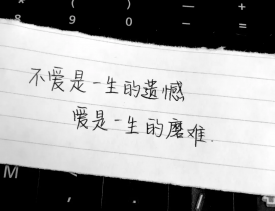 * ( ) — +
8 9 0 - =
不爱是一生的遗憾
爱是一生的磨难.
M < > ? /
, . /